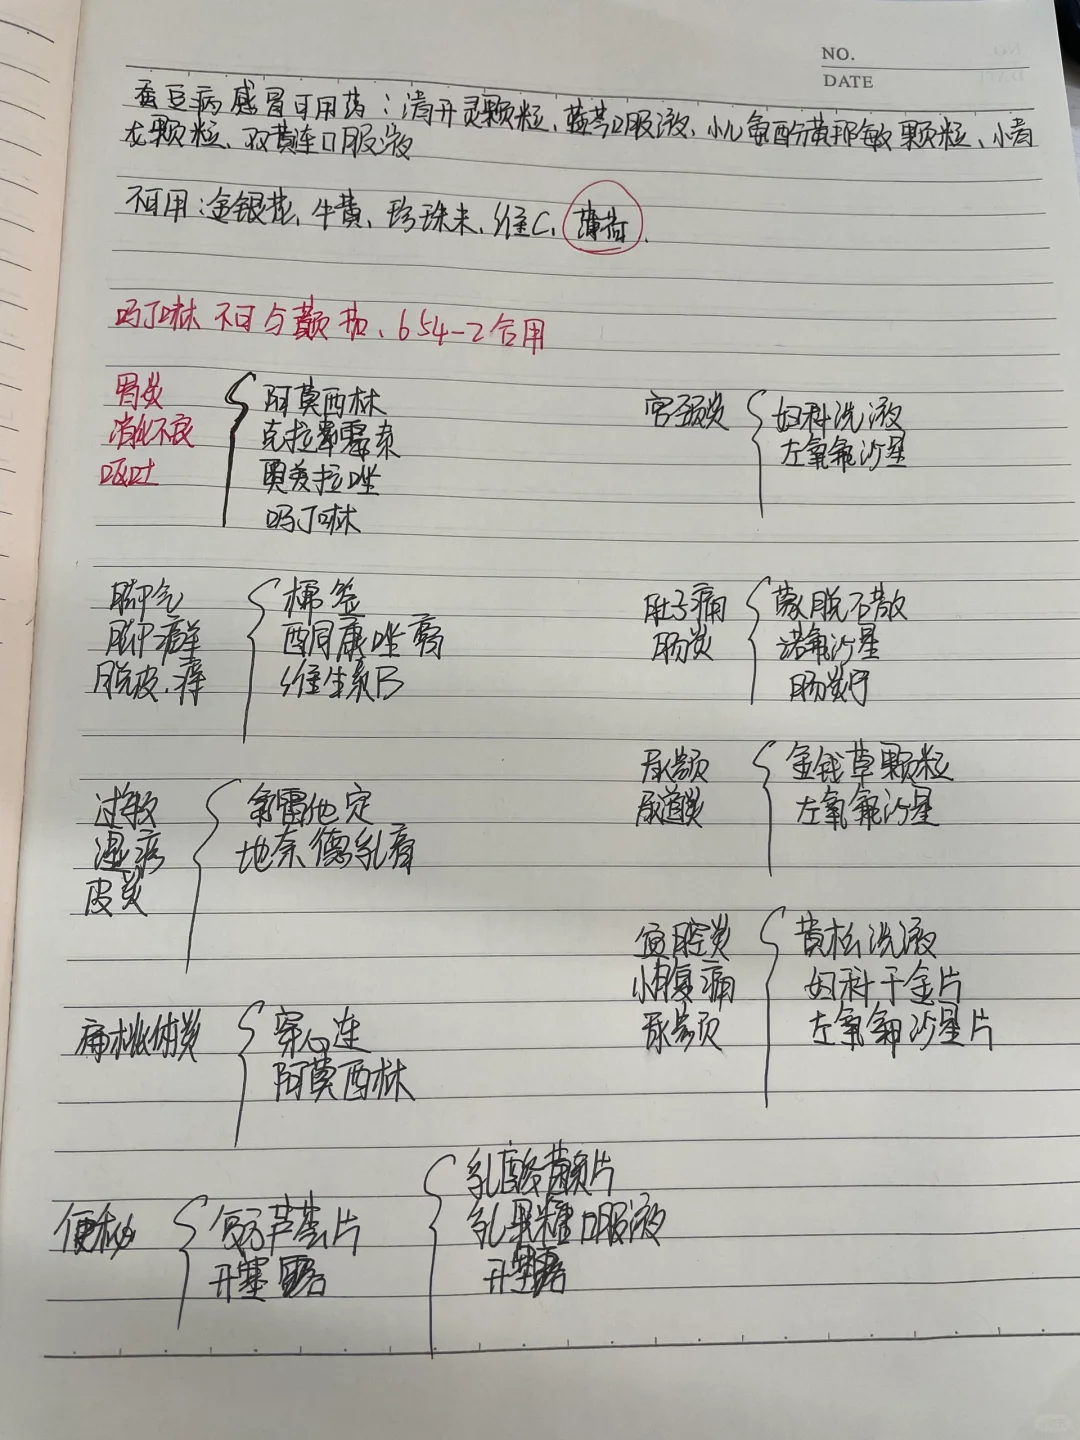 NO.
DATE
蚕豆病感冒可用药：清开灵颗粒、蓝芩口服液、小儿氨酚黄那敏颗粒、小青
龙颗粒、双黄连口服液
不可用：金银花、牛黄、珍珠末、维C、薄荷.
吗丁啉 不可与颠茄、654-2合用
胃炎
消化不良
呕吐
阿莫西林
克拉霉素
奥美拉唑
吗丁啉
宫颈炎
妇科洗液
左氧氟沙星
脚气
脚癣
脱皮、痒
棉签
酮康唑膏
维生素B
肚子痛
肠炎
蒙脱石散
诺氟沙星
肠炎宁
尿频
尿道炎
金钱草颗粒
左氧氟沙星
过敏
湿疹
皮炎
氯雷他定
地奈德乳膏
盆腔炎
小腹痛
尿频
黄松洗液
妇科千金片
左氧氟沙星片
扁桃体炎
穿心连
阿莫西林
便秘
复方芦荟片
开塞露
乳酸菌片
乳果糖口服液
开塞露